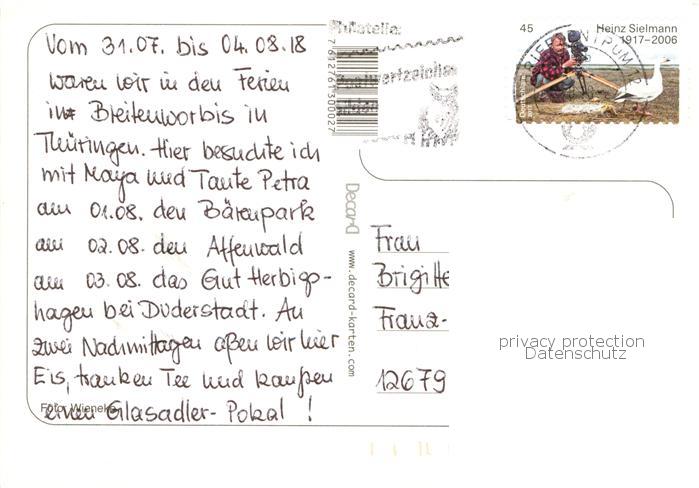 Vom 31.07. bis 04.08.18
waren wir in den Ferien
in Breitenworbis in
Thüringen. Hier besuchte ich
mit Maya und Tante Petra
am 01.08. den Bärenpark
am 02.08. den Affenwald
am 03.08. das Gut Herbigs-
hagen bei Duderstadt. An
zwei Nachmittagen aßen wir hier
Eis, tranken Tee und kauften
einen Glasadler- Pokal !
Foto: Wieneke
Philatelie:
7612761300027
Decard www.decard-karten.com
45 Heinz Sielmann
1917–2006
Deutschland
BRIEFZENTRUM
Frau
Brigitte
Franz-
12679
privacy protection
Datenschutz